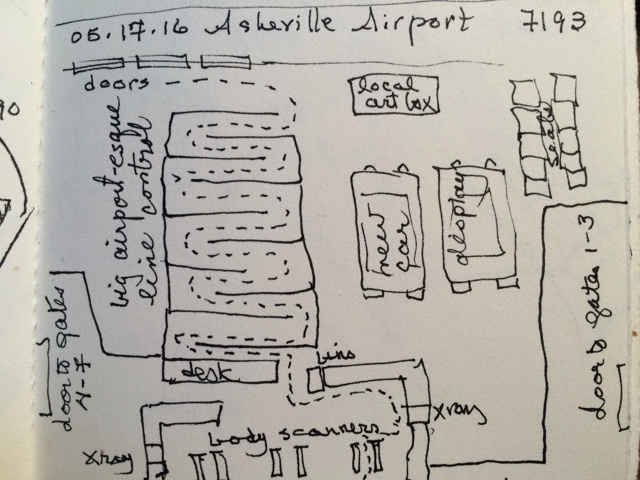 05.17.16 Asheville Airport 7193
doors
local
art box
seats
big airport-esque
line control
new
car
display
door to gates 1-3
door to gates
4-7
desk
bins
xray
body scanners
xray
90